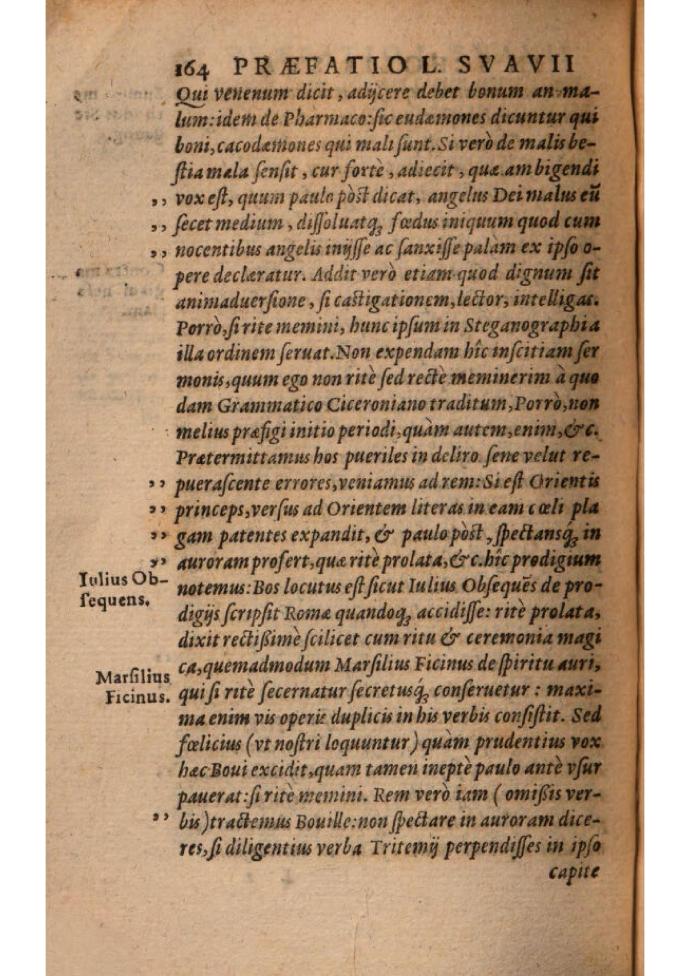 164 PRÆFATIO L. SVAVII
Qui venenum dicit, adijcere debet bonum an ma-
lum: idem de Pharmaco: sic eudæmones dicuntur qui
boni, cacodæmones qui mali sunt. Si verò de malis be-
stia mala sensit, cur fortè, adiecit, quæ ambigendi
,, vox est, quum paulo pòst dicat, angelus Dei malus eũ
,, secet medium, dissoluatq; fœdus iniquum quod cum
,, nocentibus angelis inijsse ac sanxisse palàm ex ipso o-
pere declaratur. Addit verò etiam quod dignum sit
animaduersione, si castigationem, lector, intelligas.
Porrò, si rite memini, hunc ipsum in Steganographia
illa ordinem seruat. Non expendam hîc inscitiam ser
monis, quum ego non ritè sed rectè meminerim à quo
dam Grammatico Ciceroniano traditum, Porrò, non
melius præfigi initio periodi, quàm autem, enim, &c.
Prætermittamus hos pueriles in deliro sene velut re-
,, puerascente errores, veniamus ad rem: Si est Orientis
,, princeps, versus ad Orientem literas in eam cœli pla
,, gam patentes expandit, & paulo pòst, spectansq́; in
,, auroram profert, quæ ritè prolata, &c. hîc prodigium
Iulius Ob-
sequens.
notemus: Bos locutus est sicut Iulius Obsequẽs de pro-
digijs scripsit Romæ quandoq; accidisse: ritè prolata,
dixit rectißimè scilicet cum ritu & ceremonia magi
ca, quemadmodum Marsilius Ficinus de spiritu auri,
Marsilius
Ficinus.
qui si ritè secernatur secretusq́; conseruetur: maxi-
ma enim vis operis duplicis in his verbis consistit. Sed
fœlicius (vt nostri loquuntur) quàm prudentius vox
hæc Boui excidit, quam tamen ineptè paulo antè vsur
pauerat: si ritè memini. Rem verò iam (omißis ver-
,, bis) tractemus Bouille: non spectare in auroram dice-
res, si diligentius verba Tritemij perpendisses in ipso
capite